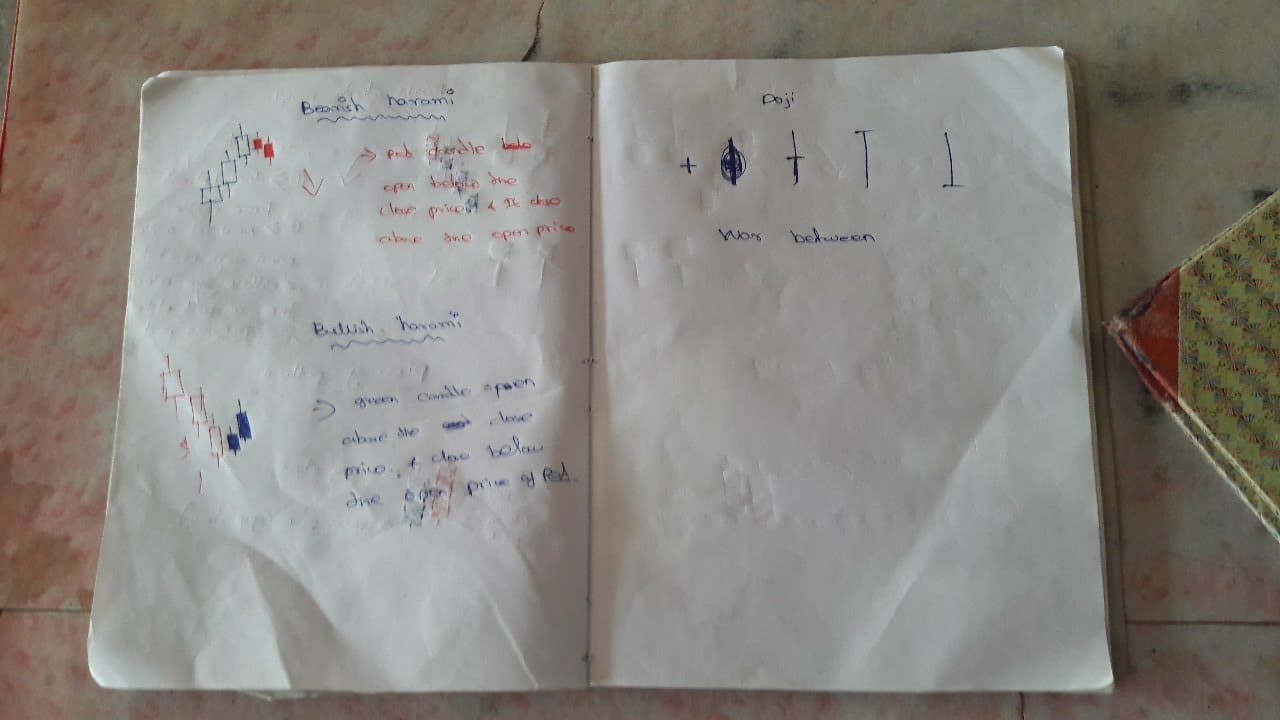 Bearish harami
→ Red candle
open below the
close price & It close
above the open price
Bullish harami
→ green candle open
above the close
price & close below
the open price of Red.
Doji
War between